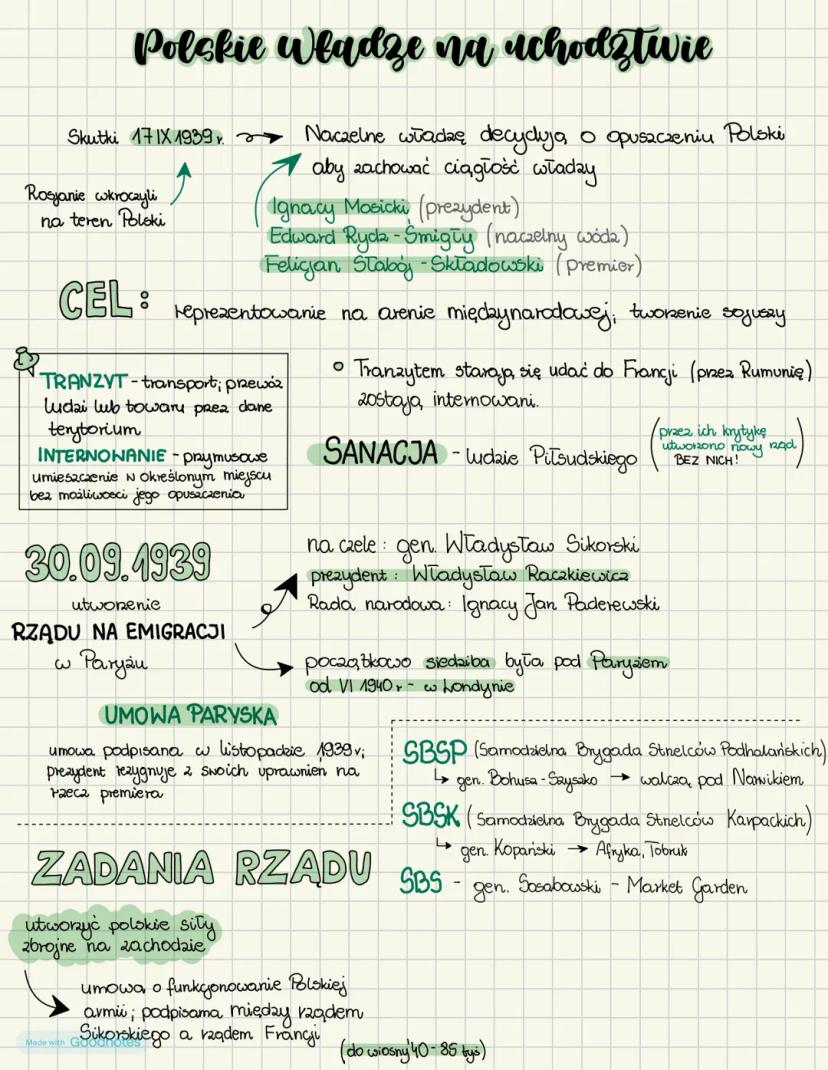 Polskie władze na uchodźtwie
Skutki 17 IX 1939 r. → Naczelne władzę decydują o opuszczeniu Polski
aby zachować ciągłość władzy
Rosjanie wkroczyli
na teren Polski
Ignacy Mosicki (prezydent)
Edward Rydz - Śmigły (naczelny wódz)
Felicjan Słabój - Składowski (premier)
CEL: reprezentowanie na arenie międzynarodowej, tworzenie sojuszy
TRANZYT - transport; przewóz
ludzi lub towaru przez dane
terytorium
INTERNOWANIE - przymusowe
umieszczenie w określonym miejscu
bez możliwości jego opuszczenia
Tranzytem starają się udać do Francji (przez Rumunię)
zostają internowani.
SANACJA - ludzie Piłsudskiego
(przez ich krytykę
utworzono nowy rząd
BEZ NICH!)
30.09.1939
utworzenie
RZĄDU NA EMIGRACJI
w Paryżu
na czele: gen. Władysław Sikorski
prezydent: Władysław Raczkiewicz
Rada narodowa: Ignacy Jan Paderewski
początkowo siedziba była pod Paryżem
od VI 1940 r - w Londynie
UMOWA PARYSKA
umowa podpisana w listopadzie 1939 r;
prezydent rezygnuje z swoich uprawnien na
rzecz premiera
SBSP (Samodzielna Brygada Strzelców Podhalańskich)
↳ gen. Bohusa - Szyszko → walczą pod Narwikiem
SBSK (Samodzielna Brygada Strzelców Karpackich)
↳ gen. Kopański → Afryka, Tobruk
SBS - gen. Sosabowski - Market Garden
ZADANIA RZĄDU
utworzyć polskie siły
zbrojne na zachodzie
umowa o funkcjonowanie Polskiej
armii; podpisama między rządem
Sikorskiego a rządem Francji
(do wiosny '40 - 85 tyś)
Made with Goodnotes